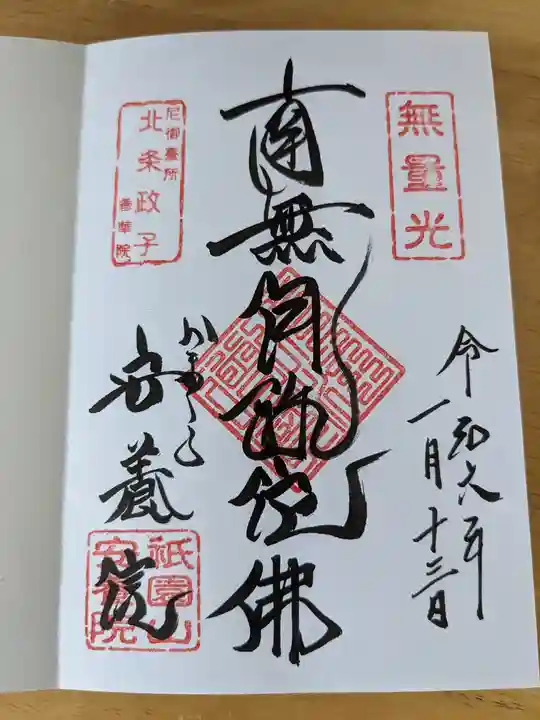 無量光
令和六年
一月十三日
南無阿弥陀佛
尼御臺所
北条政子
香華院
かまくら
安養院
祇園山
安養院